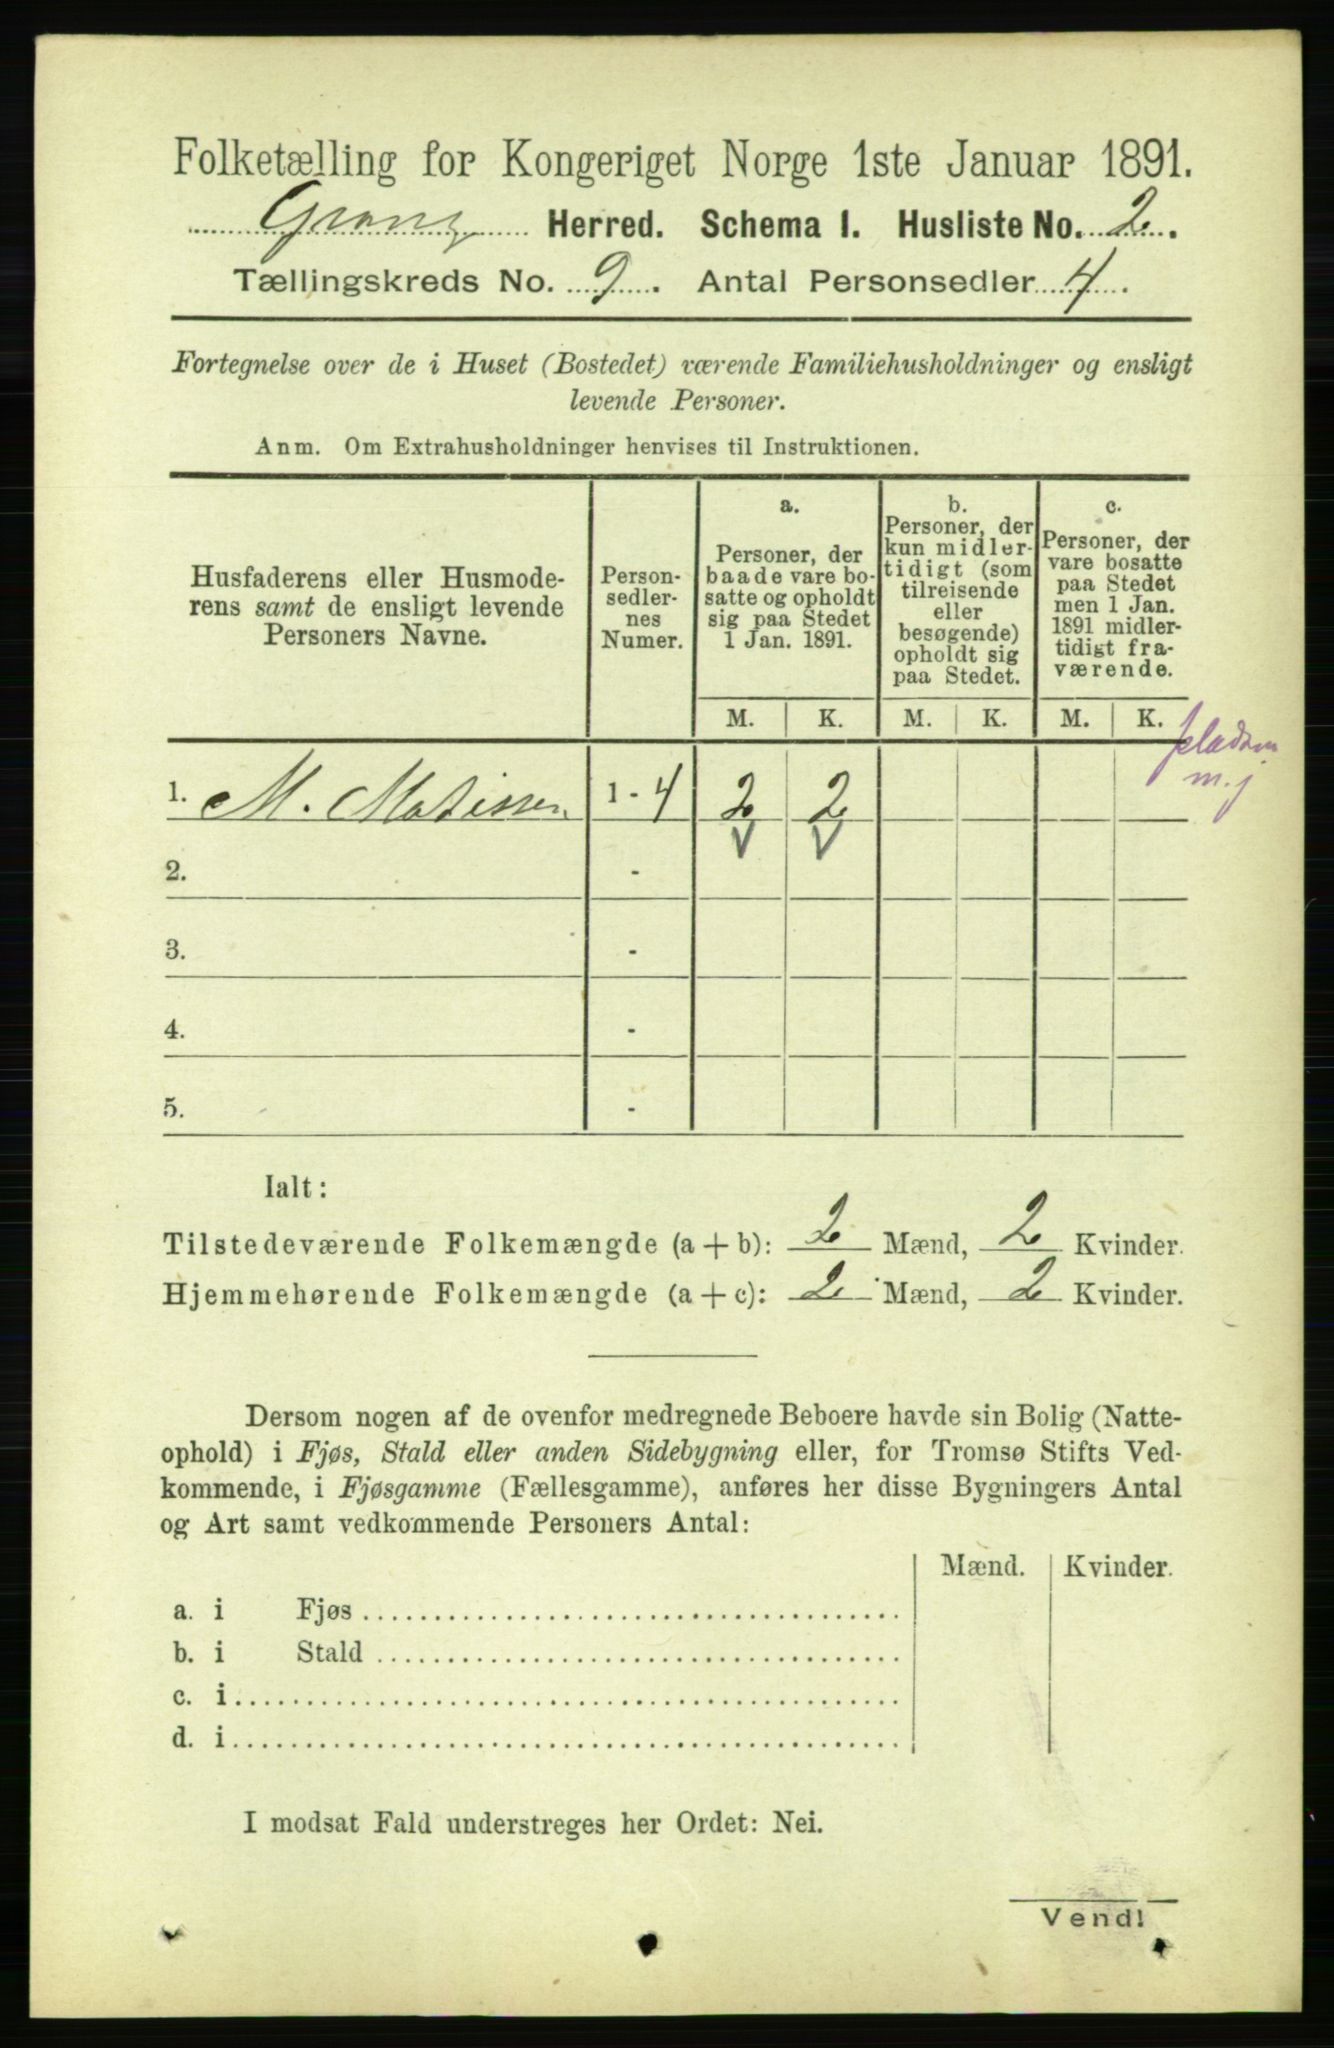 Folketælling for Kongeriget Norge 1ste Januar 1891.
Grong Herred. Schema I. Husliste No. 2.
Tællingskreds No. 9. Antal Personsedler 4.
Fortegnelse over de i Huset (Bostedet) værende Familiehusholdninger og ensligt
levende Personer.
Anm. Om Extrahusholdninger henvises til Instruktionen.
Husfaderens eller Husmode-
rens samt de ensligt levende
Personers Navne.
Person-
sedler-
nes
Numer.
a.
Personer, der
baade vare bo-
satte og opholdt
sig paa Stedet
1 Jan. 1891.
b.
Personer, der
kun midler-
tidigt (som
tilreisende
eller
besøgende)
opholdt sig
paa Stedet.
c.
Personer, der
vare bosatte
paa Stedet
men 1 Jan.
1891 midler-
tidigt fra-
værende.
M. K. M. K. M. K.
m.j
1. M. Matissen 1 - 4 2 2
2. -
3. -
4. -
5. -
Ialt:
Tilstedeværende Folkemængde (a + b): 2 Mænd, 2 Kvinder.
Hjemmehørende Folkemængde (a + c): 2 Mænd, 2 Kvinder.
Dersom nogen af de ovenfor medregnede Beboere havde sin Bolig (Natte-
ophold) i Fjøs, Stald eller anden Sidebygning eller, for Tromsø Stifts Ved-
kommende, i Fjøsgamme (Fællesgamme), anføres her disse Bygningers Antal
og Art samt vedkommende Personers Antal:
Mænd. Kvinder.
a. i Fjøs
b. i Stald
c. i
d. i
I modsat Fald understreges her Ordet: Nei.
Vend!